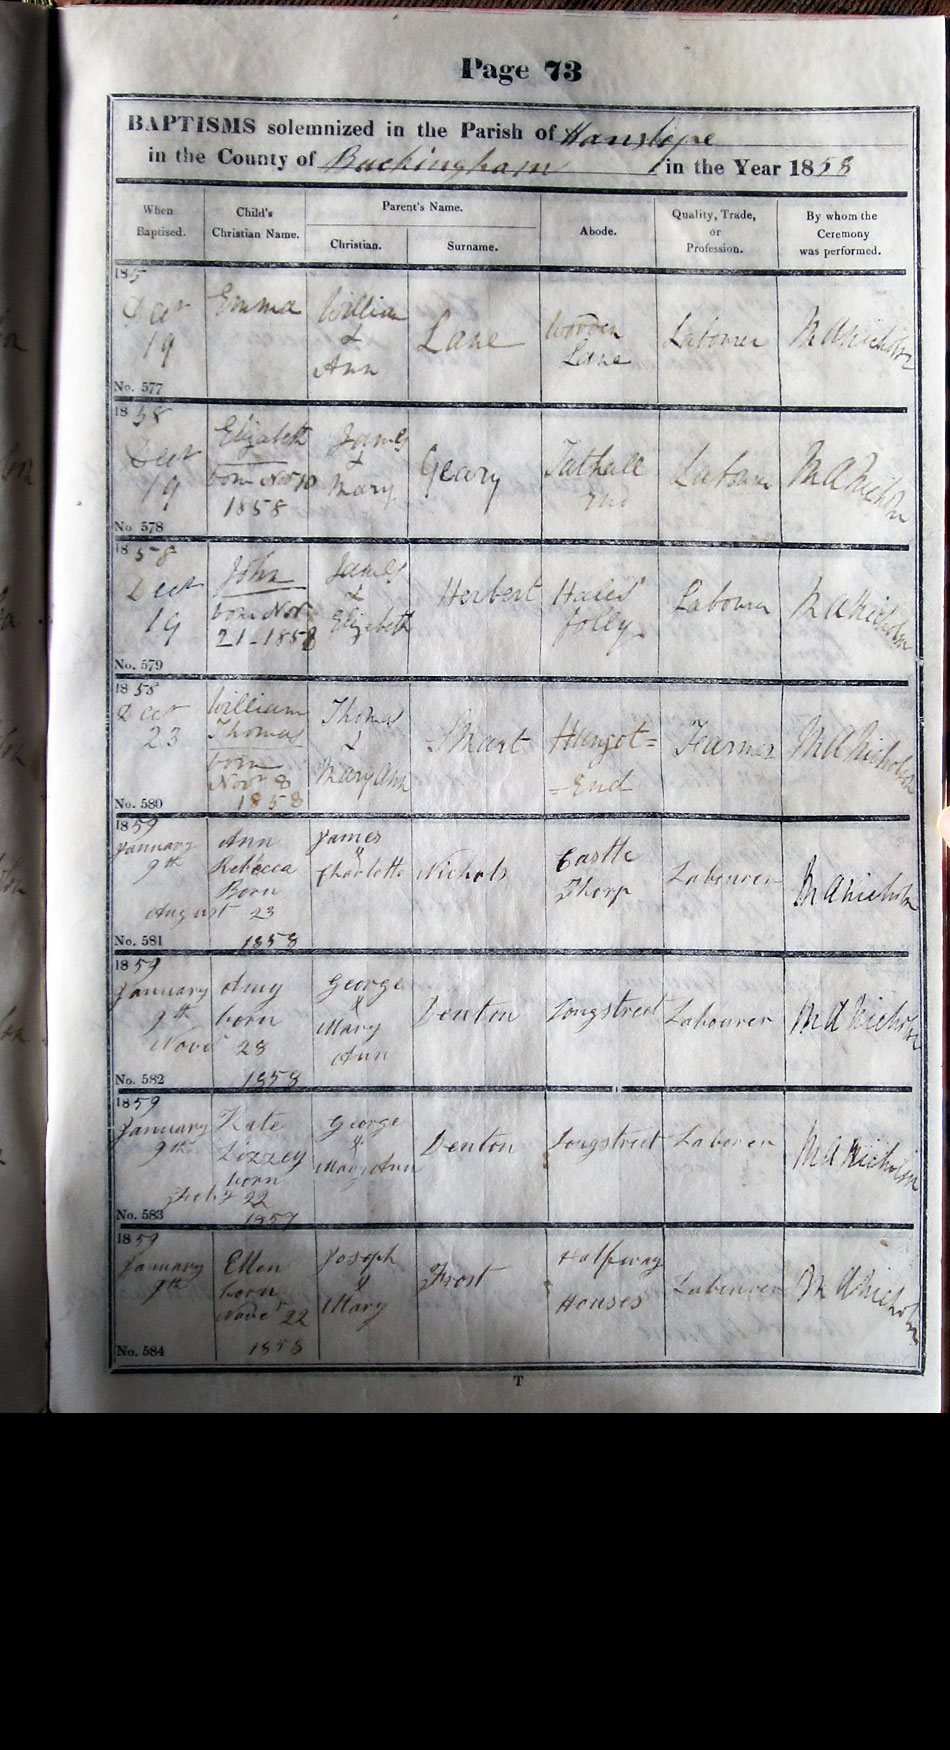 Page 73
BAPTISMS solemnized in the Parish of Hanslope
in the County of Buckingham in the Year 1858
When Baptised.
Child's Christian Name.
Parent's Name.
Christian.
Surname.
Abode.
Quality, Trade, or Profession.
By whom the Ceremony was performed.
185
Decr
19
No. 577
Emma
William
&
Ann
Lane
Lane
Labourer
M A Nicholson
1858
Decr
19
No. 578
Elizabeth
born Nov 10
1858
James
&
Mary
Geary
Tathall
End
Labourer
M A Nicholson
1858
Decr
19
No. 579
John
born Nov
21-1858
James
&
Elizabeth
Herbert
Hales
folly
Labourer
M A Nicholson
1858
Decr
23
No. 580
William
Thomas
born
Novr 8
1858
Thomas
&
Mary Ann
Smart
Hungot=
=End
Farmer
M A Nicholson
1859
January
9th
No. 581
Ann
Rebecca
Born
August 23
1858
James
&
Charlotte
Nichols
Castle
Thorp
Labourer
M A Nicholson
1859
January
9th
No. 582
Amy
born
Novr 28
1858
George
&
Mary
Ann
Denton
Longstreet
Labourer
M A Nicholson
1859
January
9th
No. 583
Kate
Lizzey
born
Feby 22
1857
George
&
Mary Ann
Denton
Longstreet
Laborer
M A Nicholson
1859
January
9th
No. 584
Ellen
born
Novr 22
1858
Joseph
&
Mary
Frost
Halfway
Houses
Labourer
M A Nicholson
T